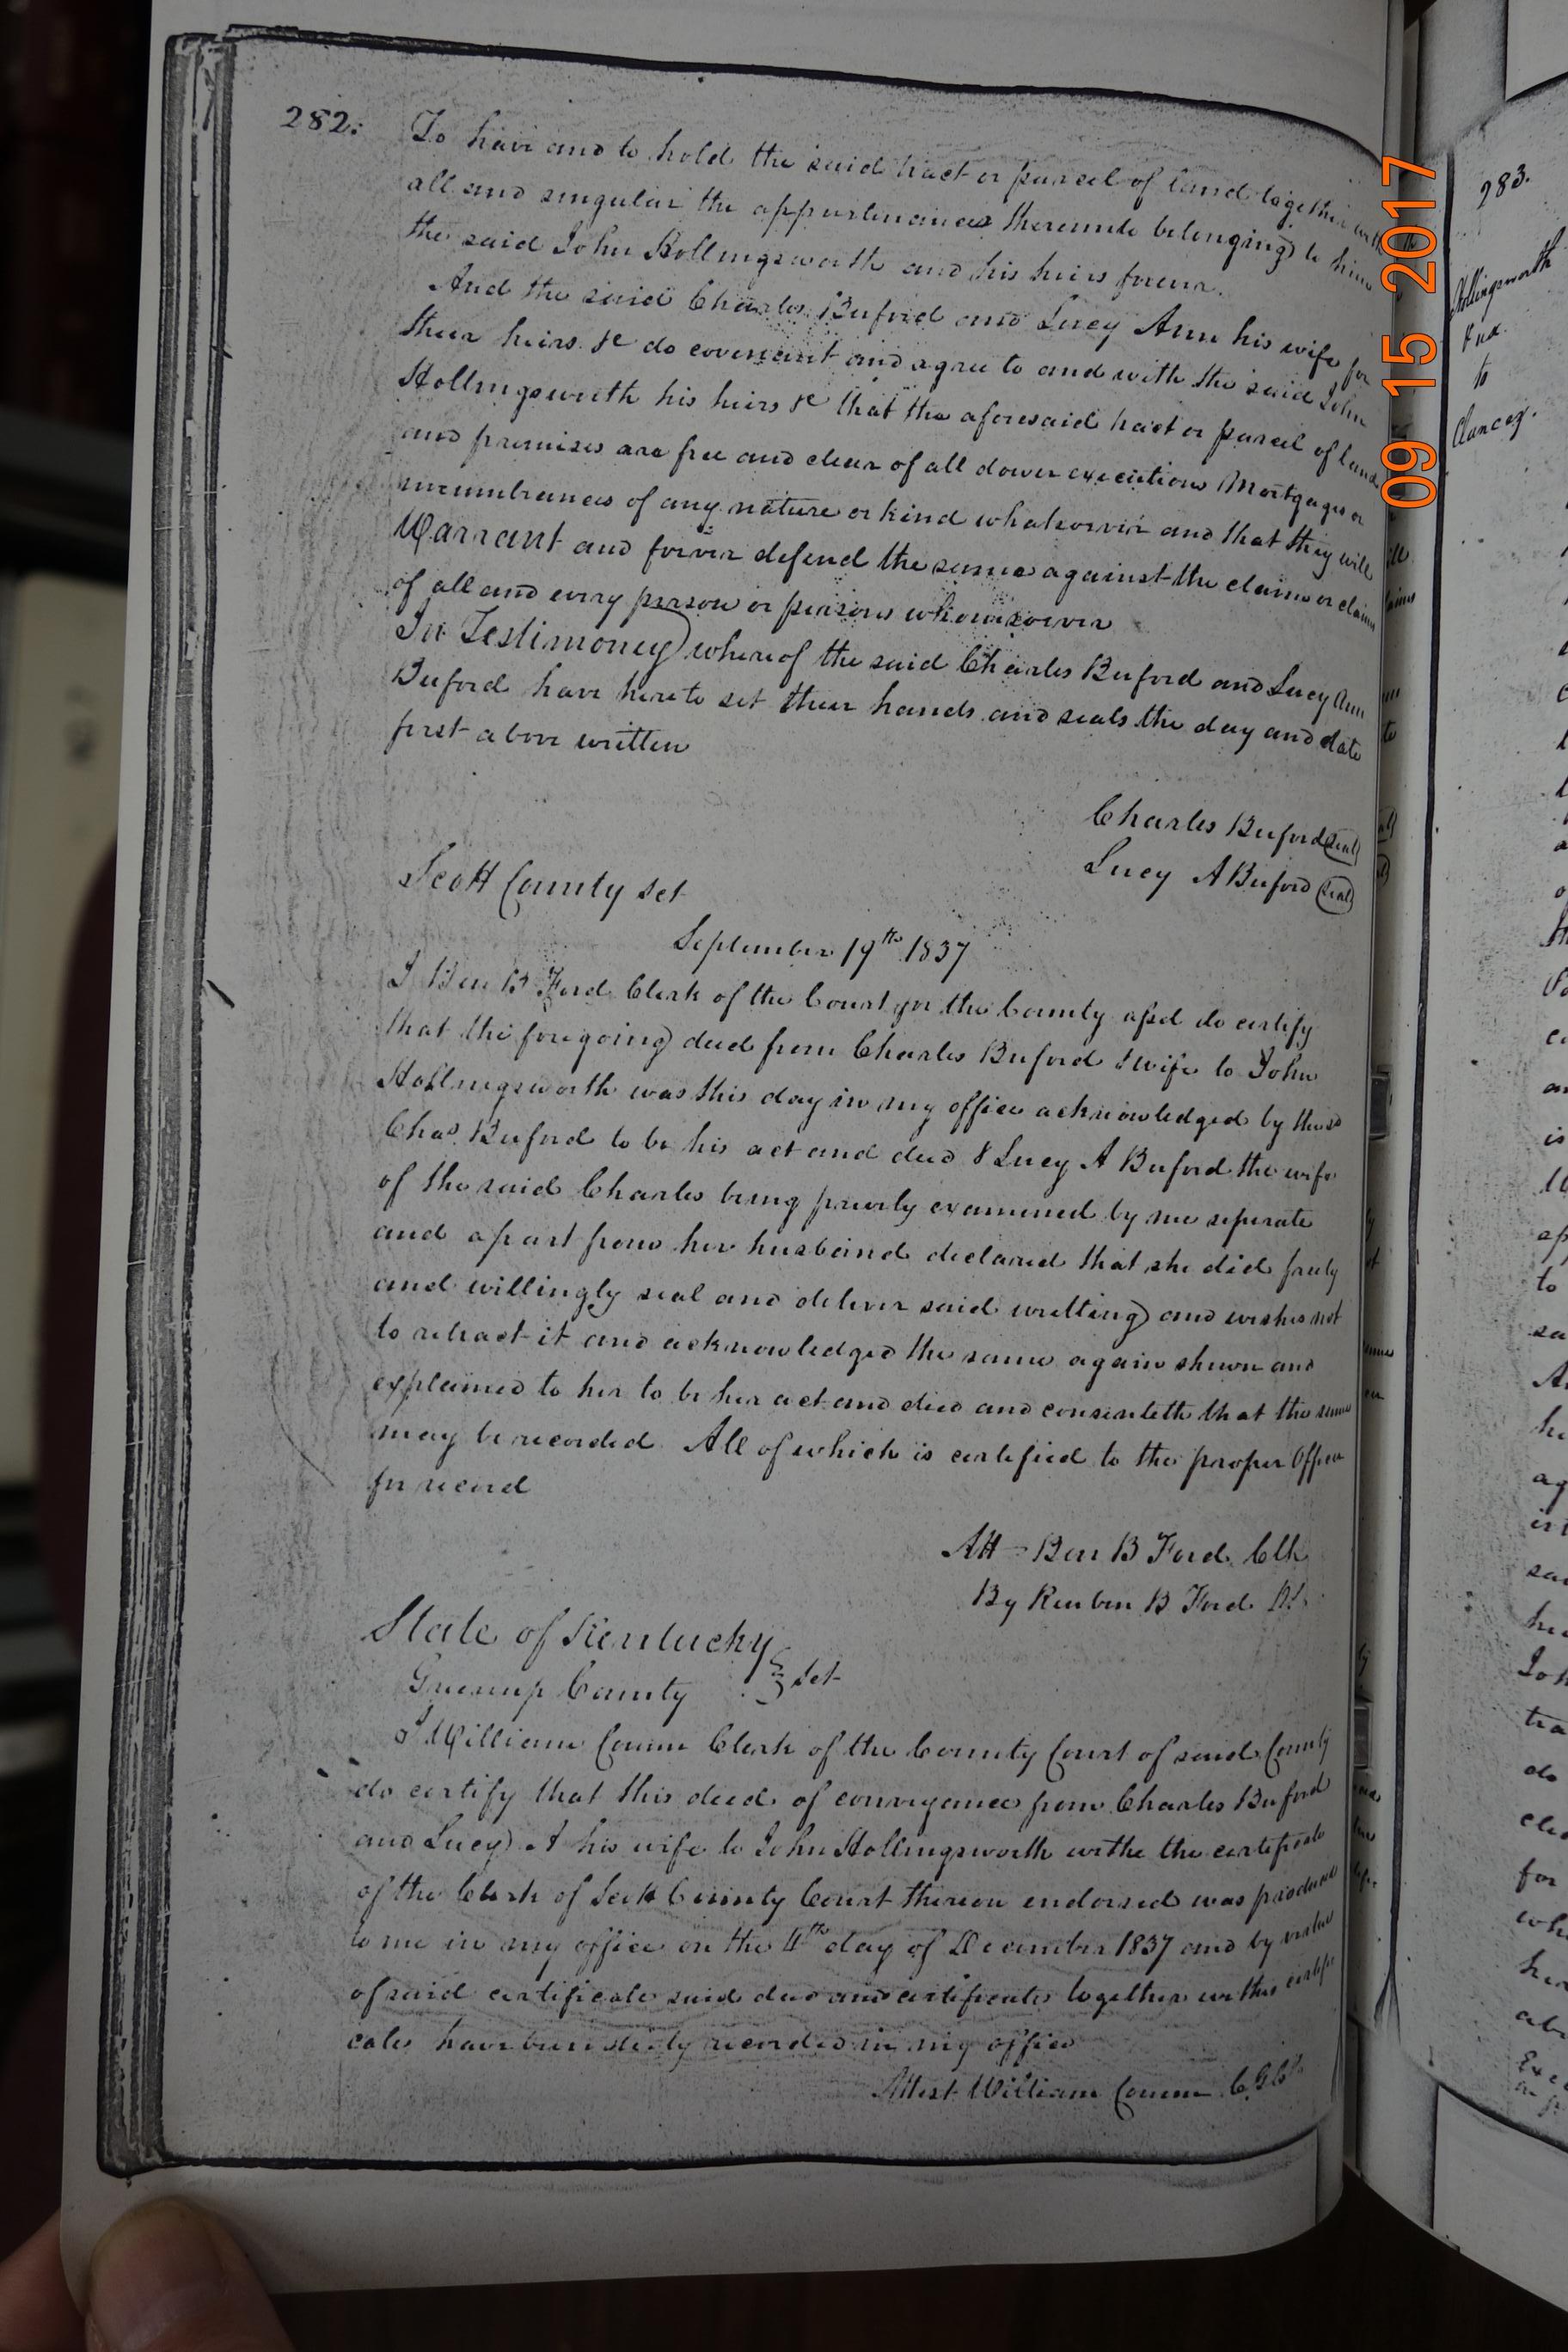 282.
To have and to hold the said tract or parcel of land together with
all and singular the appurtenances thereunto belonging to him
the said John Hollingsworth and his heirs forever.
And the said Charles Buford and Lucy Ann his wife for
their heirs &c do covenant and agree to and with the said John
Hollingsworth his heirs &c that the aforesaid tract or parcel of land
and premises are free and clear of all dower executions Mortgages or
incumbrances of any nature or kind whatsoever and that they will
Warrant and forever defend the same against the claim or claims
of all and every person or persons whomsoever
In Testimoney whereof the said Charles Buford and Lucy Ann
Buford have hereto set their hands and seals the day and date
first above written
Charles Buford (Seal)
Lucy A Buford (Seal)
Scott County Set
September 19th 1837
I Ben B Ford Clerk of the Court for the County afsd do certify
that the foregoing deed from Charles Buford & wife to John
Hollingsworth was this day in my office acknowledged by the sd
Chas Buford to be his act and deed & Lucy A Buford the wife
of the said Charles being privily examined by me seperate
and apart from her husband declared that she did freely
and willingly seal and deliver said writting and wishes not
to retract it and acknowledged the same again shewn and
explained to her to be her act and deed and consenteth that the same
may be recorded All of which is certified to the proper Office
for record
Att - Ben B Ford Clk
By Reuben B Ford
State of Kentucky
Greenup County Set
I William Corum Clerk of the County Court of said County
do certify that this deed of conveyance from Charles Buford
and Lucy A his wife to John Hollingsworth withe the certificate
of the Clerk of Scott County Court thereon endorsed was produced
to me in my office on the 4th day of December 1837 and by virtue
of said certificate said deed and certificates together with this certifi
cate have been duly recorded in my office
Attest William Corum
09 15 2017
283.
Hollingsworth
to
Clancey.